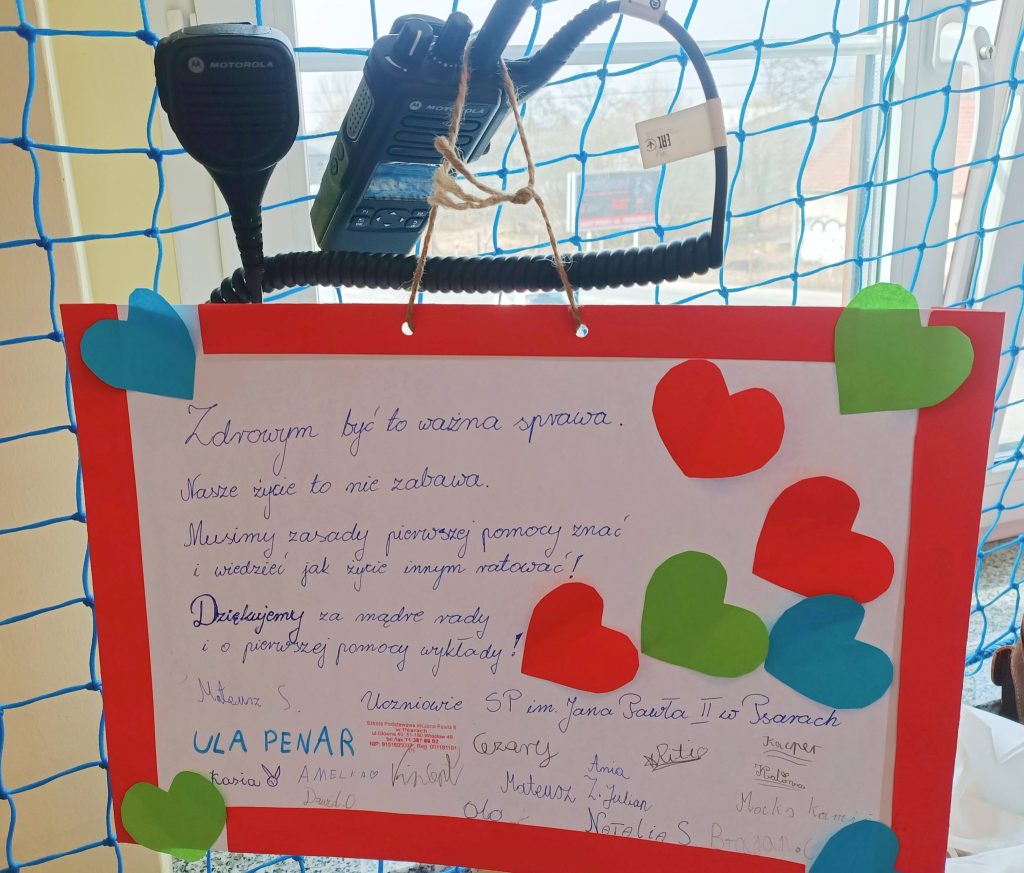 MOTOROLA
MOTOROLA
EAC
Zdrowym być to ważna sprawa.
Nasze życie to nie zabawa.
Musimy zasady pierwszej pomocy znać
i wiedzieć jak życie innym ratować!
Dziękujemy za mądre rady
i o pierwszej pomocy wykłady!
Mateusz S.
Uczniowie SP im. Jana Pawła II w Psarach
ULA PENAR
Szkoła Podstawowa im. Jana Pawła II
w Psarach
Cezary
Kacper
Kasia
AMELKA
Ania
Mateusz Z.
Julian
Dawid.O
Olo
NATALIA S